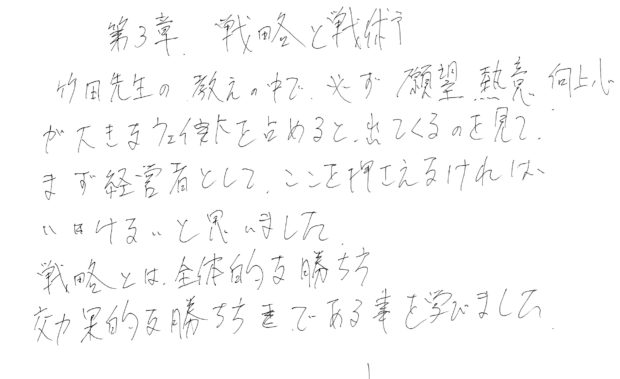 第3章 戦略と戦術
竹田先生の教えの中で、必ず 願望 熱意 向上心
が大きなウェイトを占めると、出てくるのを見て、
まず経営者として、ここを押さえなければ、
いけないと思いました。
戦略とは、全体的な勝ち方
効果的な勝ち方である事を学びました。